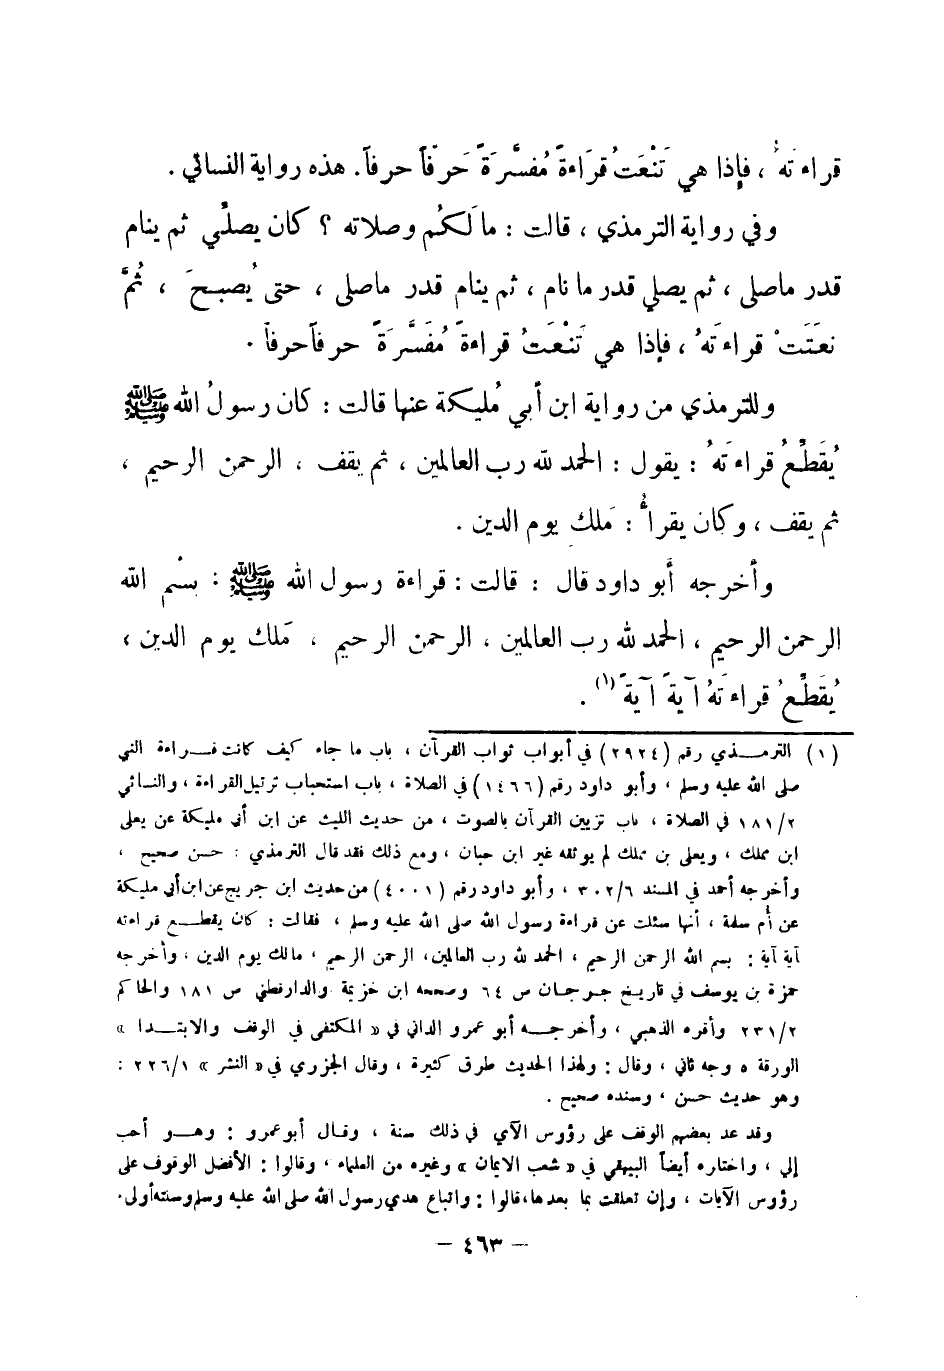 قراءتَهُ ، فإِذا هي تَنْعَتُ قرَاءةً مُفسَّرَةً حَرفاً حرفاً. هذه رواية النسائي .
وفي رواية الترمذي ، قالت : مالَكُم وصلاته ؟ كان يصلِّي ثم ينام
قدر ماصلى ، ثم يصلي قدر ما نام ، ثم ينام قدر ماصلى ، حتى يُصبحَ ، ثُمَّ
نعَتَتْ قراءتَهُ ، فإذا هي تَنْعَتُ قراءةً مُفَسَّرَةً حرفاًحرفاً .
وللترمذي من رواية ابن أبي مُليكة عنها قالت : كان رسولُ الله ﷺ
يُقَطِّعُ قراءتَهُ : يقول : الحمد لله رب العالمين ، ثم يقف ، الرحمن الرحيم ،
ثم يقف ، وكان يقرأُ : مَلك يوم الدين .
وأخرجه أبو داود قال : قالت : قراءة رسول الله ﷺ : بسْم الله
الرحمن الرحيم ، الحمد لله رب العالمين ، الرحمن الرحيم ، مَلك يوم الدين ،
يُقَطِّعُ قراءتَهُ آيةً آيةً (١) .
(١) الترمـذي رقم (٢٩٢٤) في أبواب ثواب القرآن ، باب ما جاء كيف كانت قـراءة النبي
صلى الله عليه وسلم ، وأبو داود رقم (١٤٦٦) في الصلاة ، باب استحباب ترتيل القراءة ، والنسائي
١٨١/٢ في الصلاة ، باب تزيين القرآن بالصوت ، من حديث الليث عن ابن أبي مليكة عن يعلى
ابن مملك ، ويعلى بن مملك لم يوثقه غير ابن حبان ، ومع ذلك فقد قال الترمذي : حسن صحيح ،
وأخرجه أحمد في المسند ٣٠٢/٦ ، وأبو داود رقم (٤٠٠١) من حديث ابن جريج عن ابن أبي مليكة
عن أم سلمة ، أنها سئلت عن قراءة رسول الله صلى الله عليه وسلم ، فقالت : كان يقطـع قراءته
آية آية : بسم الله الرحمن الرحيم ، الحمد لله رب العالمين، الرحمن الرحيم ، مالك يوم الدين ، وأخرجه
حمزة بن يوسف في تاريخ جرجان ص ٦٤ وصححه ابن خزيمة والدارقطني ص ١٨١ والحاكم
٢٣١/٢ وأقره الذهبي ، وأخرجـه أبو عمرو الداني في « المكتفى في الوقف والابتـدا »
الورقة ٥ وجه ثاني ، وقال : ولهذا الحديث طرق كثيرة ، وقال الجزري في « النشر » ٢٢٦/١ :
وهو حديث حسن ، وسنده صحيح .
وقد عد بعضهم الوقف على رؤوس الآي في ذلك سنة ، وقال أبو عمرو : وهـو أحب
إلي ، واختاره أيضاً البيهقي في « شعب الايمان » وغيره من العلماء ، وقالوا : الأفضل الوقوف على
رؤوس الآيات ، وإن تعلقت بما بعدها، قالوا : واتباع هدي رسول الله صلى الله عليه وسلم وسنته أولى.
– ٤٦٣ –